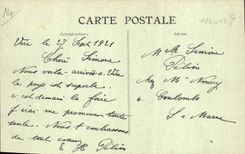 CARTE POSTALE
Correspondance
Vire le 27 Sept 1921
Chère Simone
Nous voilà arrivés a Vire
le pays est superbe
c'est demain la foire
j'irai me promener toute
seule. Nous t'embrassons
de tout cœur
E H Pélion
Melle Simone
Pélion
chez Mr
a Coulombs
S. Marne